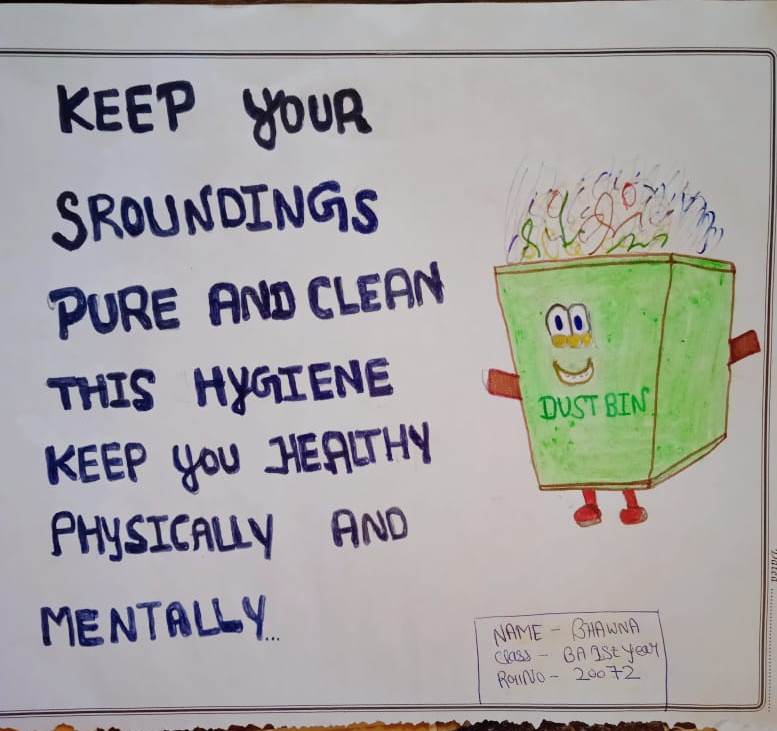 KEEP YOUR
SROUNDINGS
PURE AND CLEAN
THIS HYGIENE
KEEP YOU HEALTHY
PHYSICALLY AND
MENTALLY...
DUST BIN
NAME - BHAWNA
Class - BA 1St year
RollNO - 20072